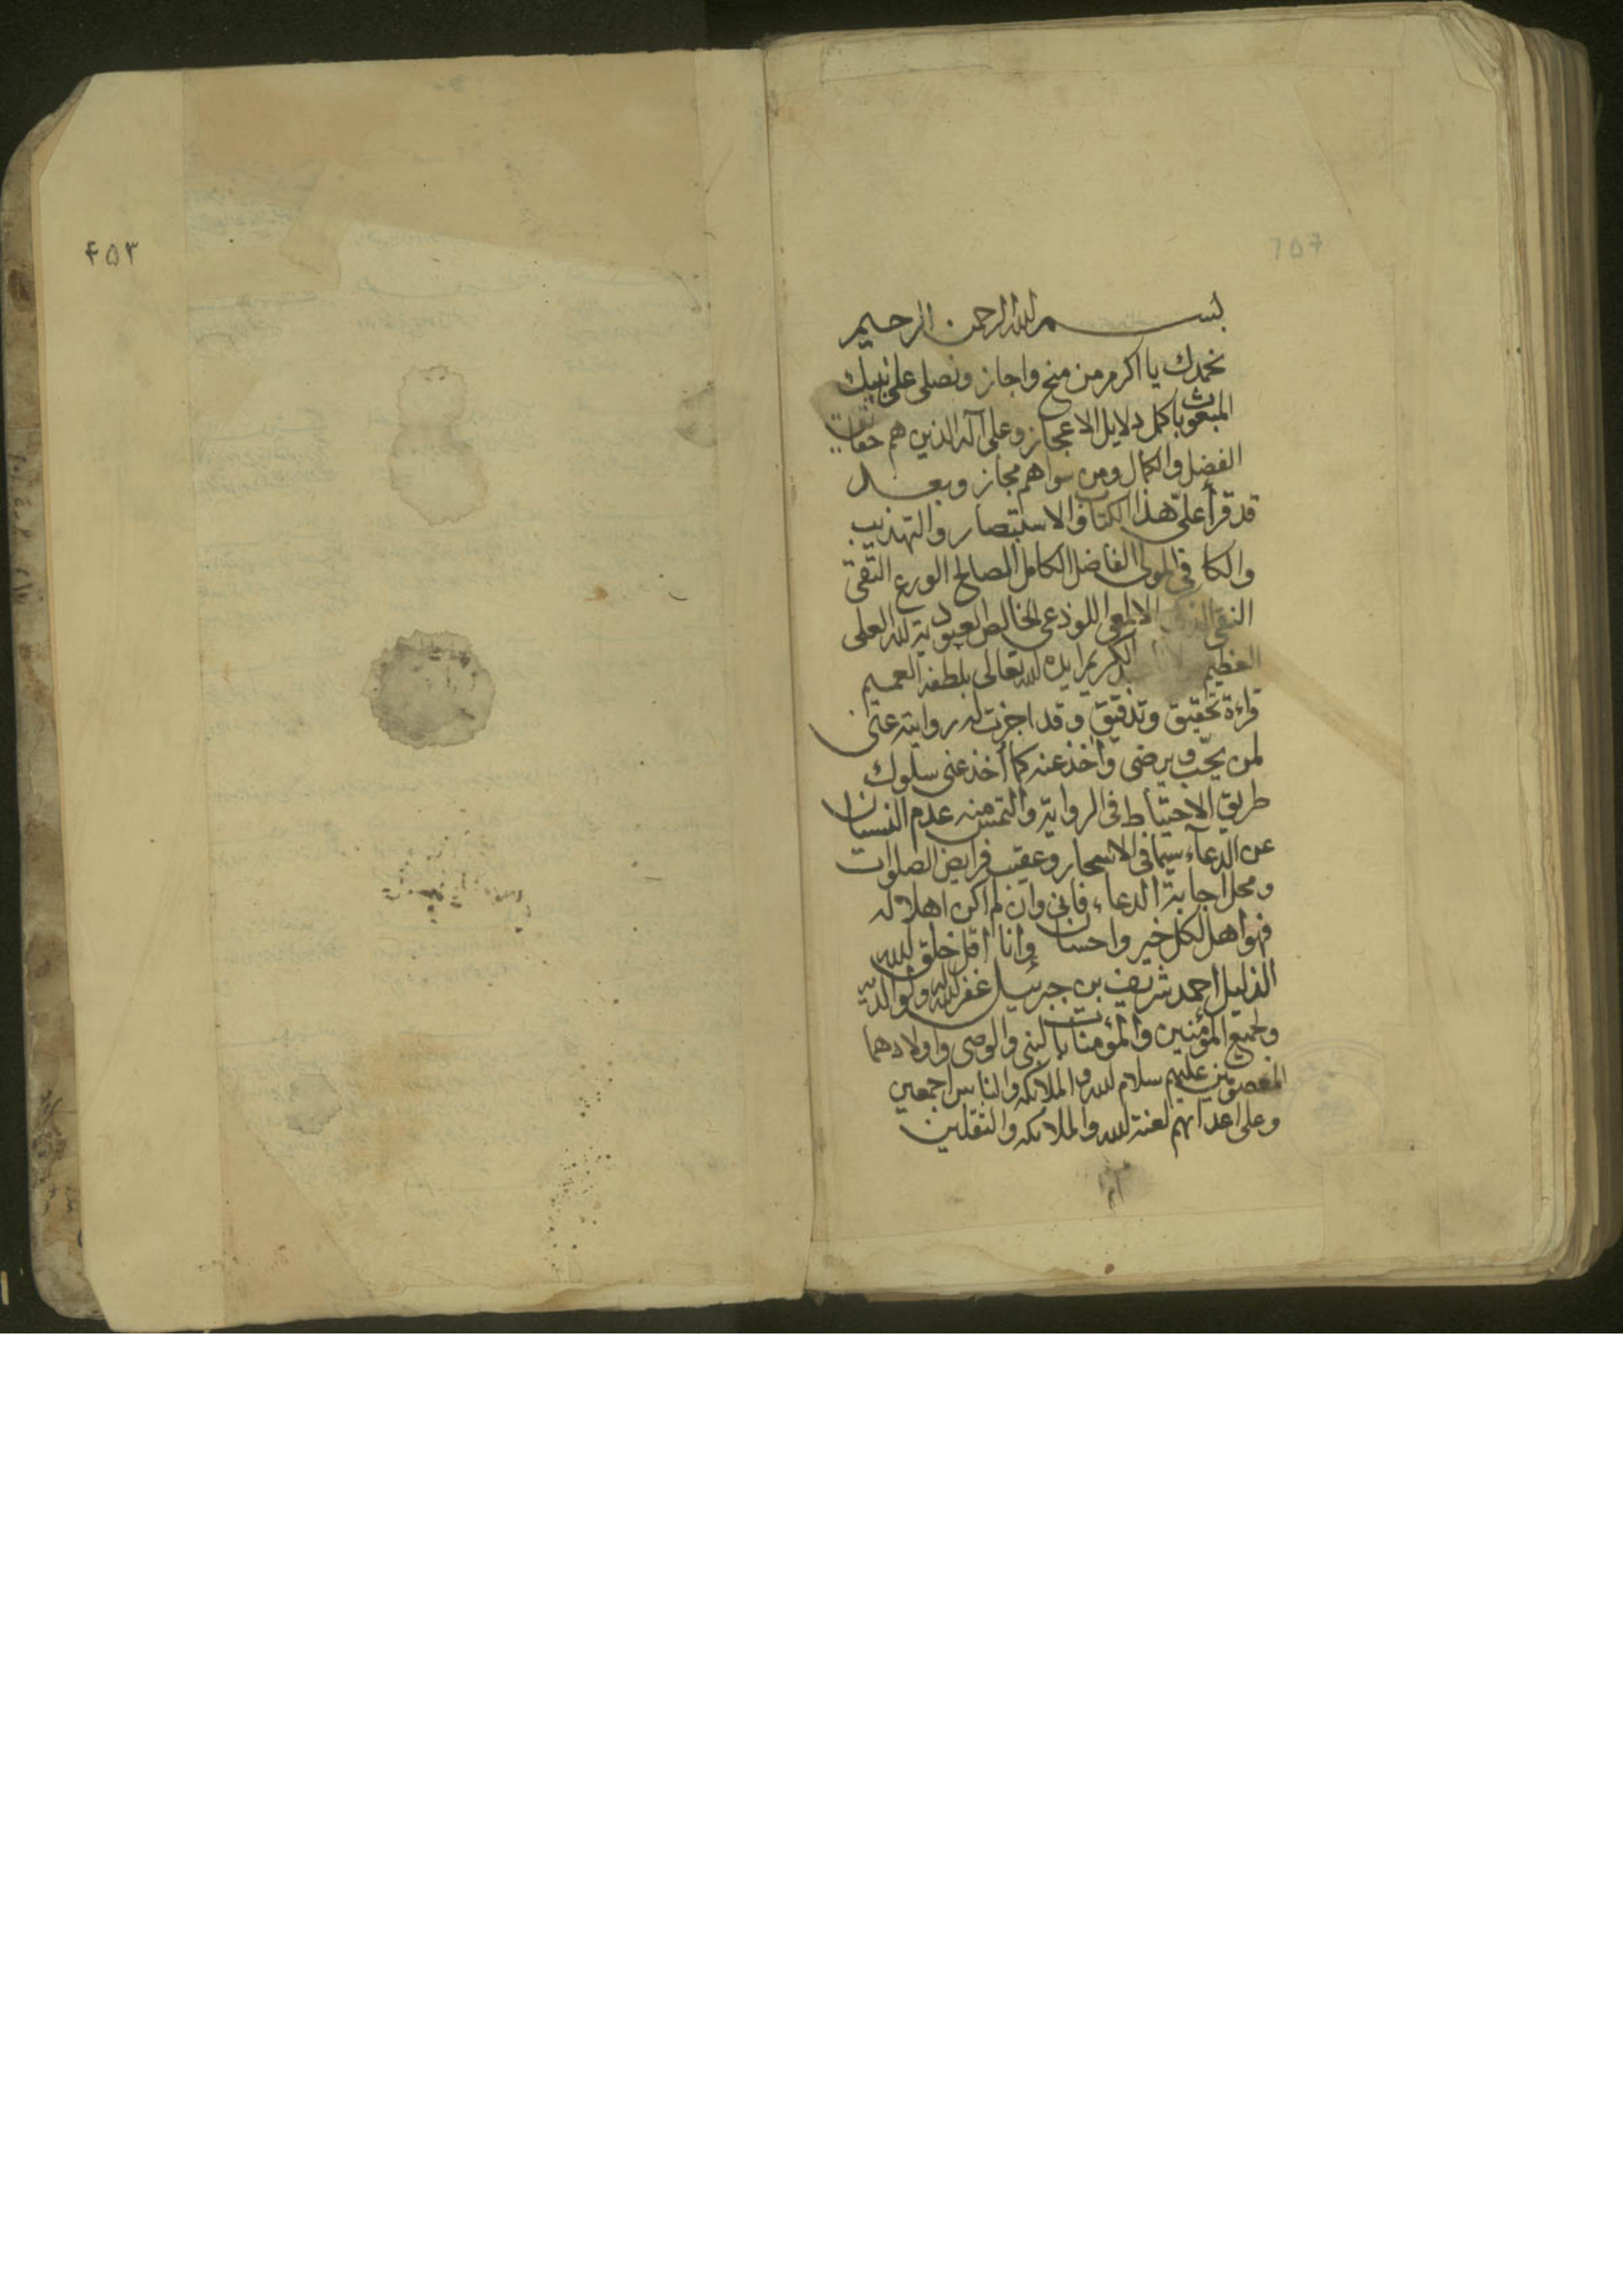 بسم الله الرحمن الرحيم
نحمدك يا اكرم من منح واجاز ونصلى على نبيك
المبعوث باكمل دلايل الاعجاز وعلى آله الذين هم حقايق
الفضل والكمال ومن سواهم مجاز وبعد
قد قرأ علىّ هذا الكتاب والاستبصار والتهذيب
والكافى المولى الفاضل الكامل الصالح الورع التقى
النقى الالمعى اللوذعى الخالص العبودية لله العلى
العظيم الكريم ايده الله تعالى بلطفه العميم
قراءة تحقيق وتدقيق وقد اجزت له روايته عنى
لمن يحب ويرضى وأخذ عنه كما أخذ عنى سلوك
طريق الاحتياط فى الرواية والتمس منه عدم النسيان
عن الدعاء سيما فى الاسحار وعقيب فرايض الصلوات
ومحل اجابة الدعاء، فانى وان لم اكن اهلا له
فهو اهل لكل خير واحسان وانا اقل خلق الله
الذليل احمد شريف بن جبرئيل غفر الله له ولوالديه
ولجميع المؤمنين والمؤمنات بالنبى والوصى واولادهما
المعصومين عليهم سلام الله والملائكه والناس اجمعين
وعلى اعدائهم لعنة الله والملائكه والثقلين
۴۵۳